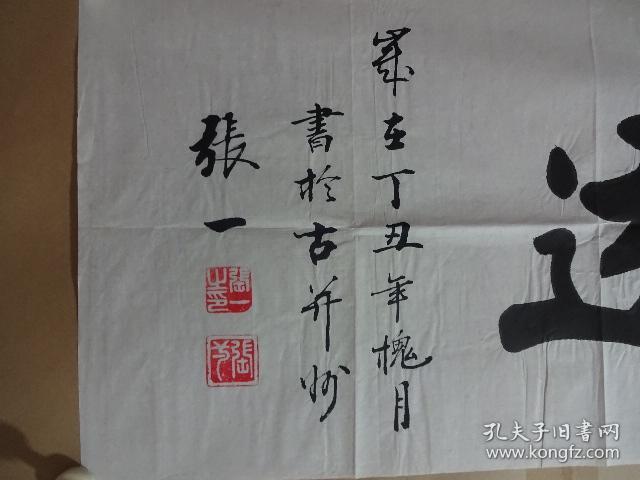 歲在丁丑年槐月
書於古并州
張一
張一之印
孔夫子旧书网
kongfz.com